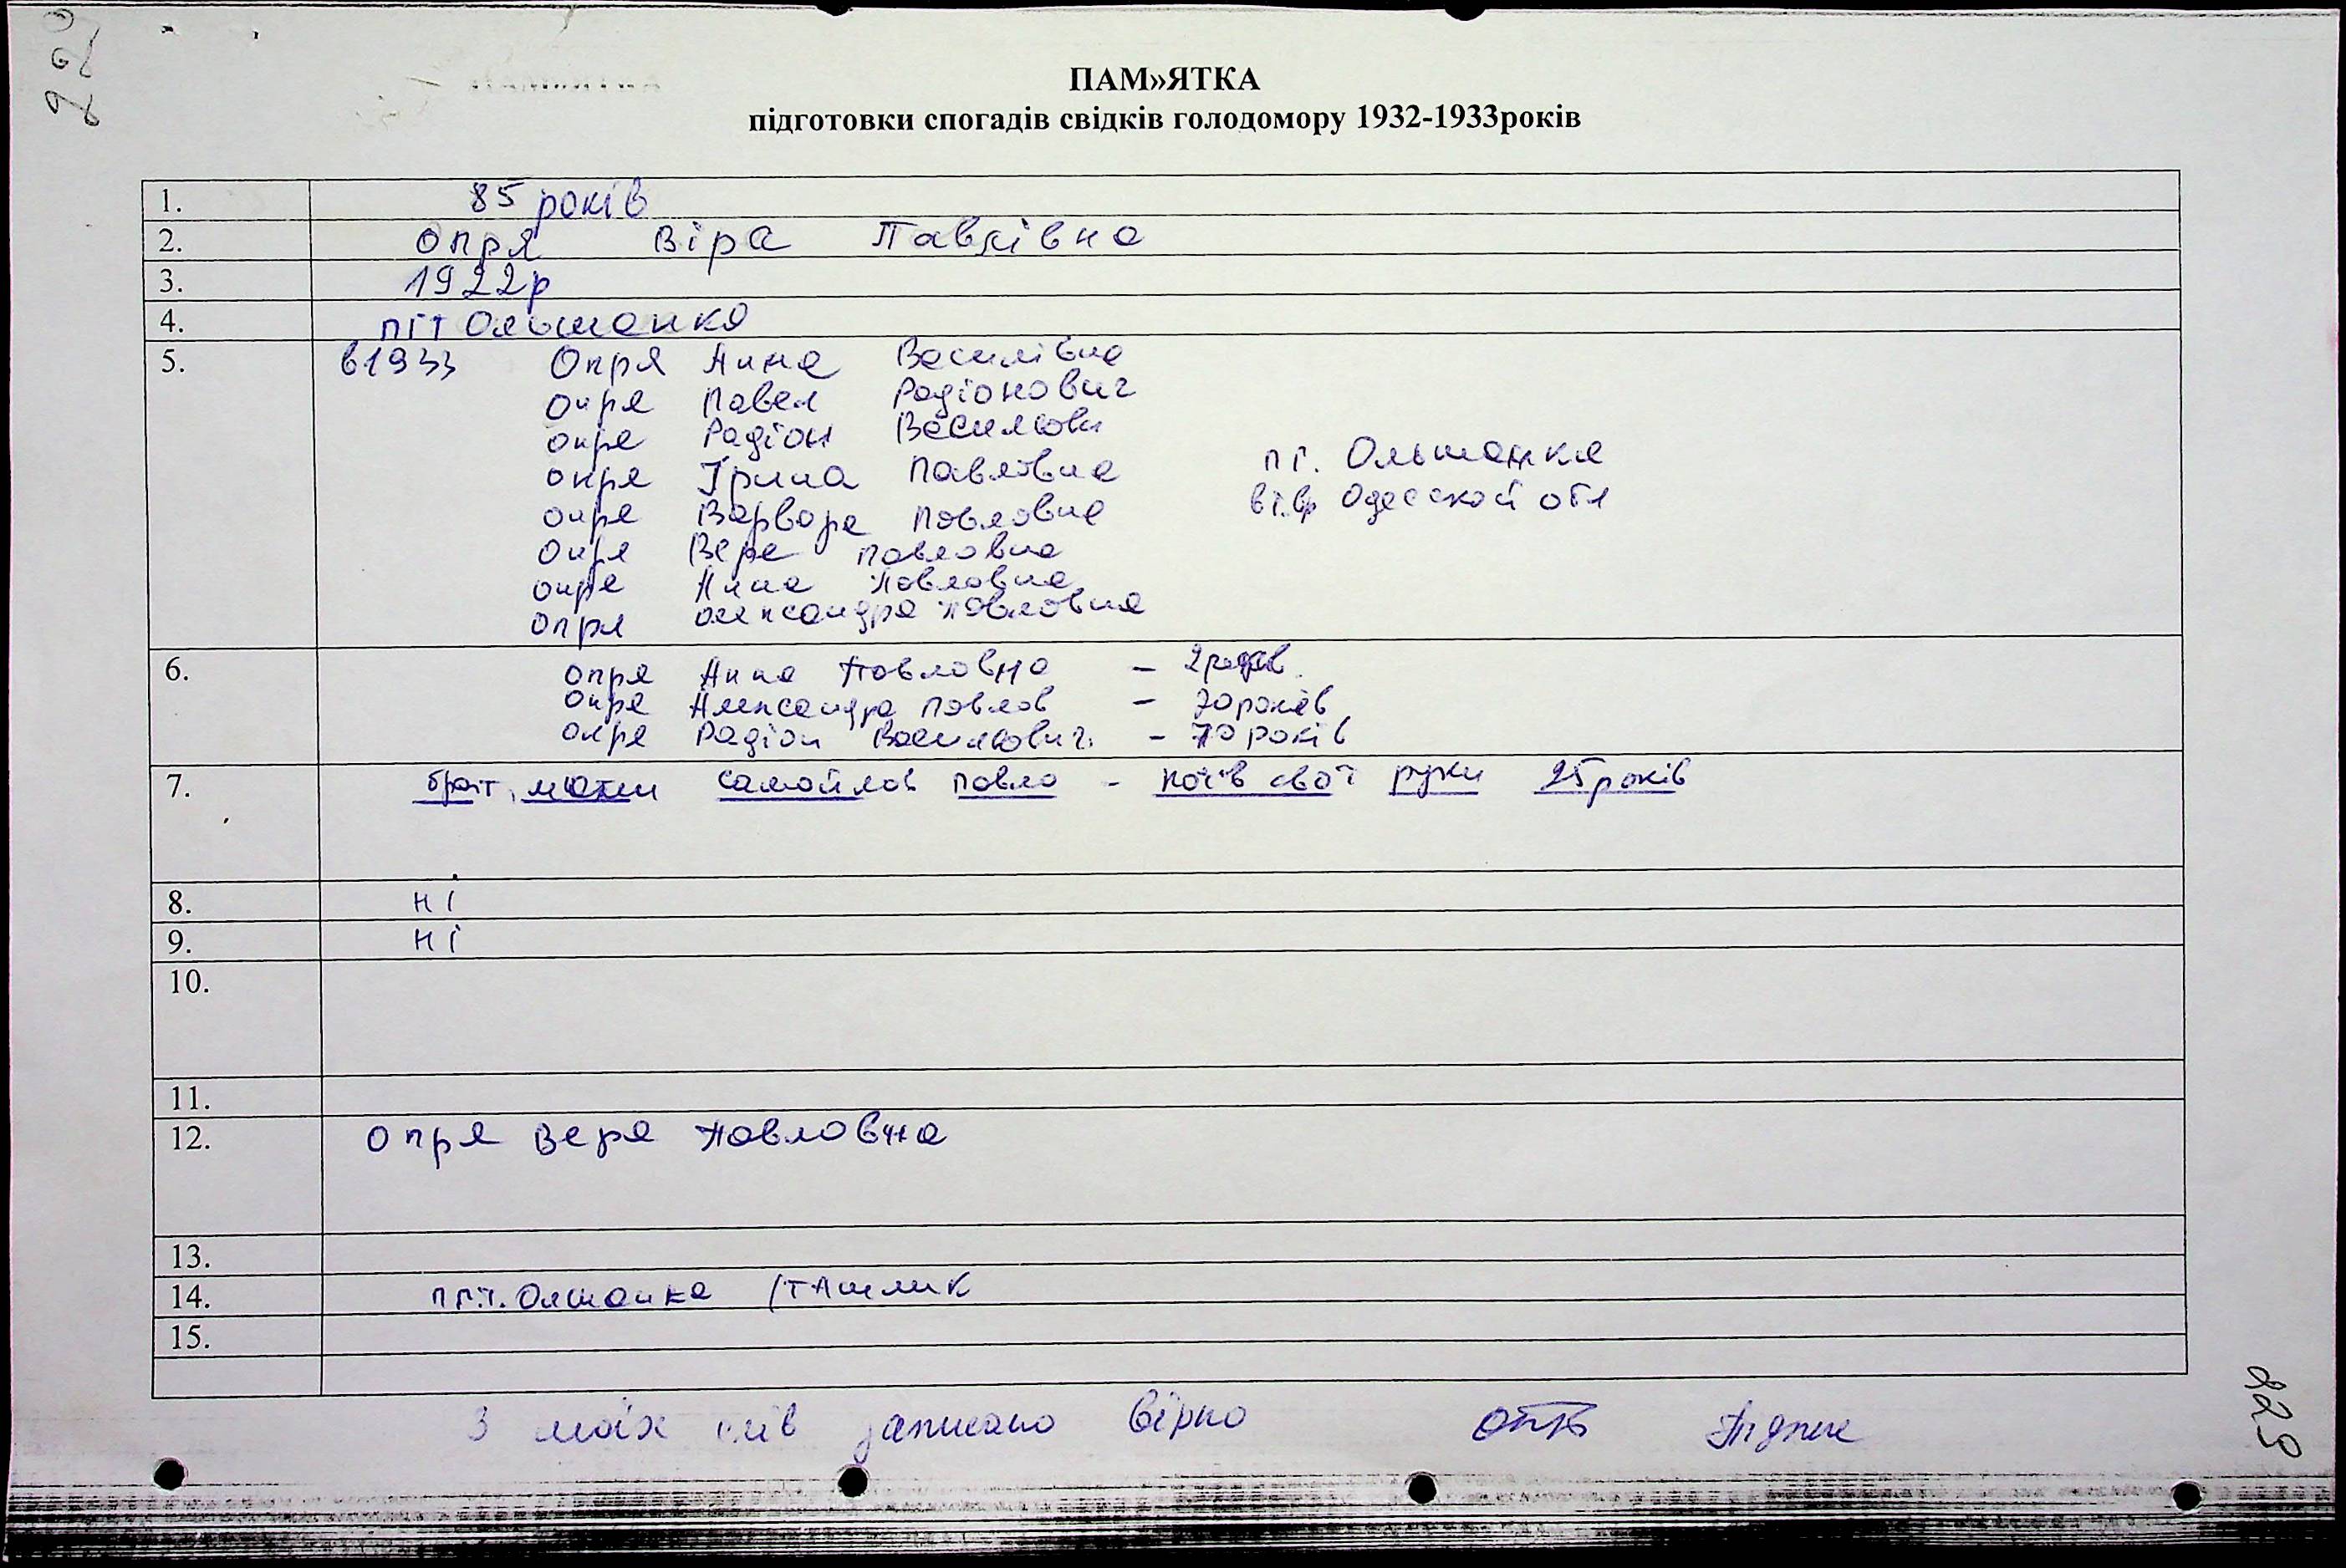 ПАМ»ЯТКА
підготовки спогадів свідків голодомору 1932-1933років
1. 85 років
2. Опря Віра Павлівна
3. 1922р
4. пгт Ольшанка
5. в1933 Опря Анна Василівна
Опря Павел Радіонович
Опря Радіон
Опря Ірина Павлівна пг. Ольшанка
Опря Варвара Павловна Одесской обл
Опря Вера Павловна
Опря Анна Павловна
Опря Олександра Павловна
6. Опря Анна Павловна –
Опря Александра Павлов –
Опря Радіон Васильович – 70 років
7. брат, матки Самойлов Павло – поїв свої руки 25 років
8. ні
9. ні
10.
11.
12. Опря Вера Павловна
13.
14. пгт. Олшанка /Ташлик
15.
З моїх слів записано вірно
229